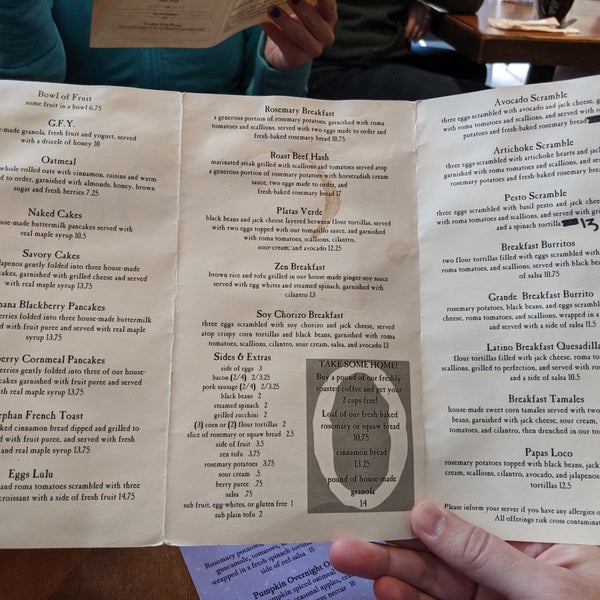 Bowl of Fruit
some fruit in a bowl 6.75
G.F.Y.
-made granola, fresh fruit and yogurt, served
with a drizzle of honey 10
Oatmeal
whole-rolled oats with cinnamon, raisins and warm
d to order, garnished with almonds, honey, brown
sugar and fresh berries 7.25
Naked Cakes
house-made buttermilk pancakes served with
real maple syrup 10.5
Savory Cakes
lapenos gently folded into three house-made
cakes, garnished with grilled cheese and served
with real maple syrup 13.75
nana Blackberry Pancakes
erries folded into three house-made buttermilk
ed with fruit puree and served with real maple
syrup 13.75
berry Cornmeal Pancakes
erries gently folded into three of our house-
cakes, garnished with fruit puree and served
with real maple syrup 13.75
rphan French Toast
baked cinnamon bread dipped and grilled to
ed with fruit puree, and served with fresh
and real maple syrup 13.75
Eggs Lulu
and roma tomatoes scrambled with three
croissant with a side of fresh fruit 14.75
Rosemary Breakfast
a generous portion of rosemary potatoes, garnished with roma
tomatoes and scallions, served with two eggs made to order and
fresh-baked rosemary bread 10.75
Roast Beef Hash
marinated steak grilled with scallions and tomatoes served atop
a generous portion of rosemary potatoes with horseradish cream
sauce, two eggs made to order, and
fresh-baked rosemary bread 17
Platas Verde
black beans and jack cheese layered between flour tortillas, served
with two eggs topped with our tomatillo sauce, and garnished
with roma tomatoes, scallions, cilantro,
sour cream, and avocado 12.25
Zen Breakfast
brown rice and tofu grilled in our house-made ginger-soy sauce
served with egg whites and steamed spinach, garnished with
cilantro 13
Soy Chorizo Breakfast
three eggs scrambled with soy chorizo and jack cheese, served
atop crispy corn tortillas and black beans, garnished with roma
tomatoes, scallions, cilantro, sour cream, salsa, and avocado 13
Sides & Extras
side of eggs 3
bacon (2/4) 2/3.25
pork sausage (2/4) 2/3.25
black beans 2
steamed spinach 2
grilled zucchini 2
(3) corn or (2) flour tortillas 2
slice of rosemary or squaw bread 2.5
side of fruit 3.5
zen tofu 3.75
rosemary potatoes 3.75
sour cream .5
berry puree .75
salsa .75
sub fruit, egg-whites, or gluten free 1
sub plain tofu 2
TAKE SOME HOME!
Buy a pound of our freshly
roasted coffee and get your
2 cups free!
Loaf of our fresh baked
rosemary or squaw bread
10.75
cinnamon bread
13.25
pound of house-made
granola
14
Avocado Scramble
three eggs scrambled with avocado and jack cheese, g
with roma tomatoes and scallions, and served with r
potatoes and fresh-baked rosemary bread
Artichoke Scramble
three eggs scrambled with artichoke hearts and jack
garnished with roma tomatoes and scallions, and serve
rosemary potatoes and fresh-baked rosemary bread
Pesto Scramble
three eggs scrambled with basil pesto and jack chees
with roma tomatoes and scallions, and served with gri
and a spinach tortilla 13
Breakfast Burritos
two flour tortillas filled with eggs scrambled with
roma tomatoes, and scallions, served with black bea
of salsa 10.75
Grande Breakfast Burrito
rosemary potatoes, black beans, and eggs scramb
cheese, roma tomatoes, and scallions, wrapped in a
and served with a side of salsa 11.5
Latino Breakfast Quesadilla
flour tortillas filled with jack cheese, roma to
scallions, grilled to perfection, and served with
and a side of salsa 10.5
Breakfast Tamales
house-made sweet corn tamales served with two
beans, garnished with jack cheese, sour cream,
tomatoes, and cilantro, then drenched in our tom
Papas Loco
rosemary potatoes topped with black beans, jack
cream, scallions, cilantro, avocado, and jalapenos
tortillas 12.5
Please inform your server if you have any allergies o
All offerings risk cross contaminat
Rosemary potatoes,
guacamole, tomatoes,
wrapped in a fresh spinach tortilla
side of red salsa 15
Pumpkin Overnight O
pumpkin spiced oatmeal
seasonal apples, cra
ve nectar 10